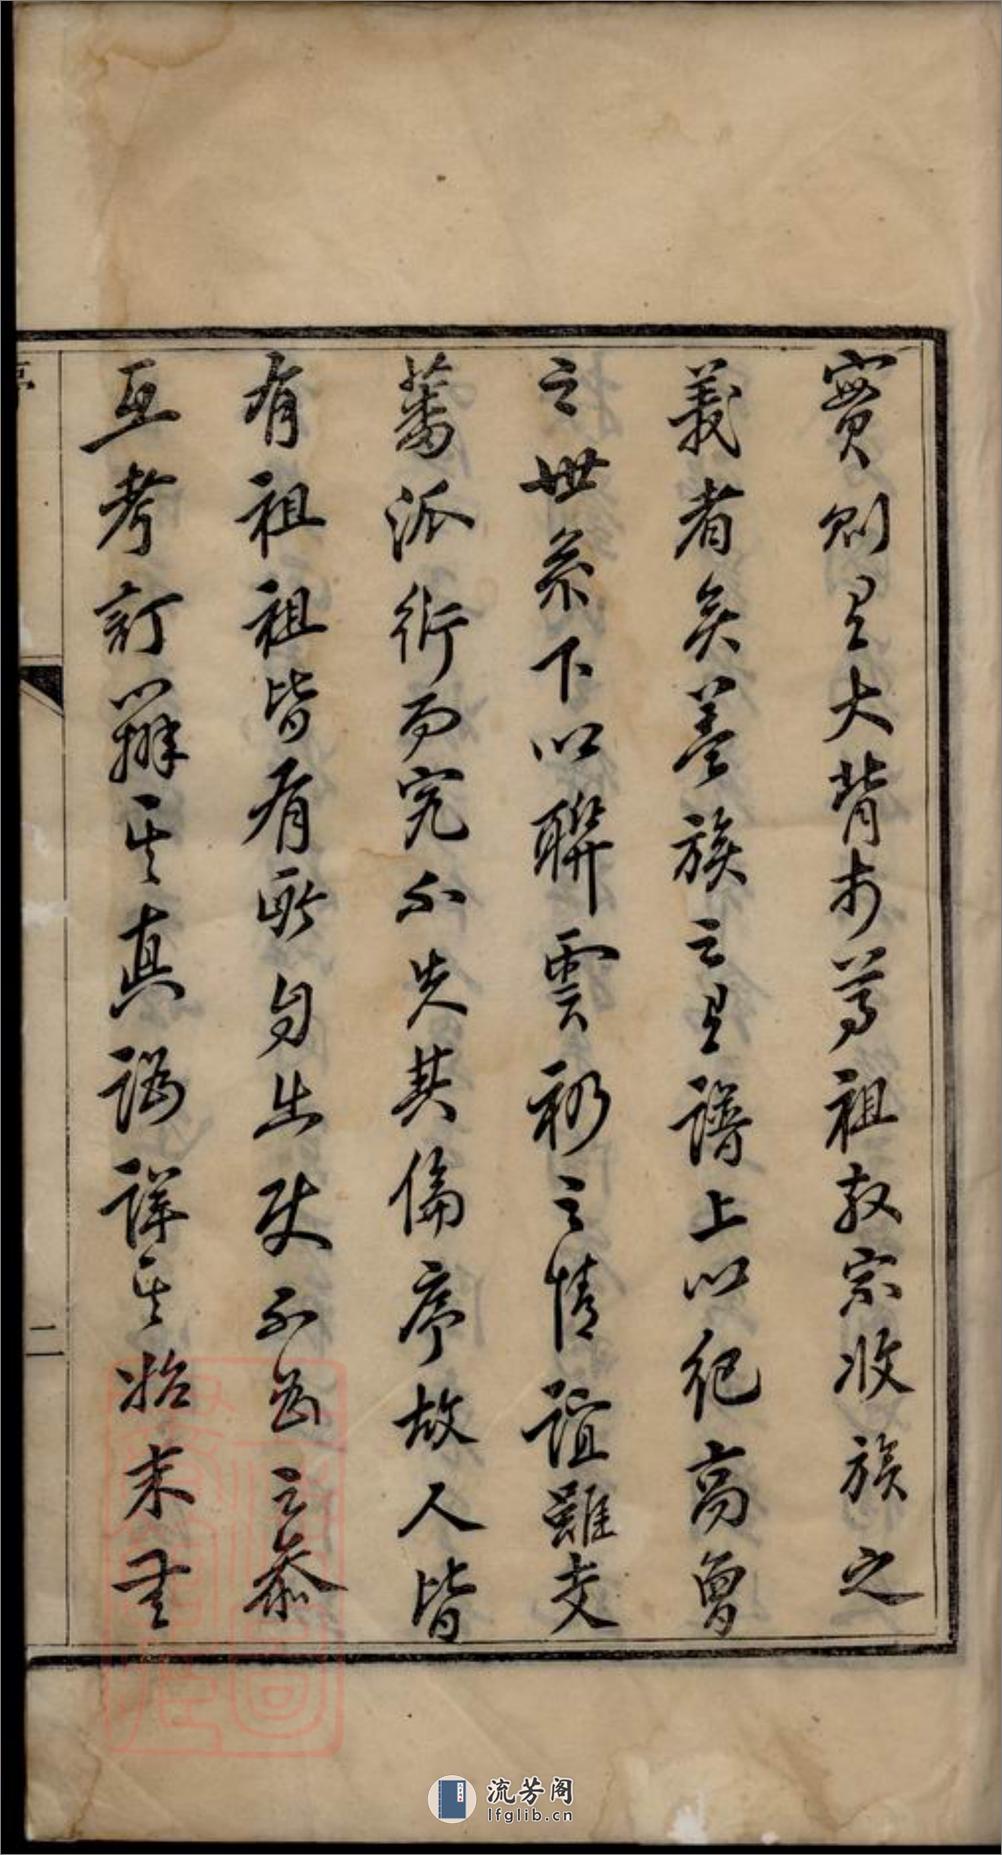 實則是大背於尊祖敬宗收族之
義者矣蓋族之有譜上以紀高曾
之世系下以聯雲礽之情誼雖支
蕃派衍而究不失其倫序故人皆
有祖祖皆有所自出使不為之參
互考訂辨其真譌詳其始末無
序
二
流芳阁
lfglib.cn